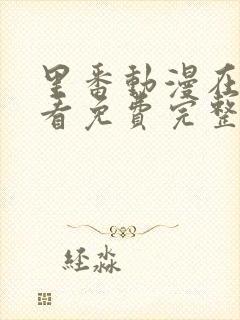 里番動漫在
看免費完整
経淼